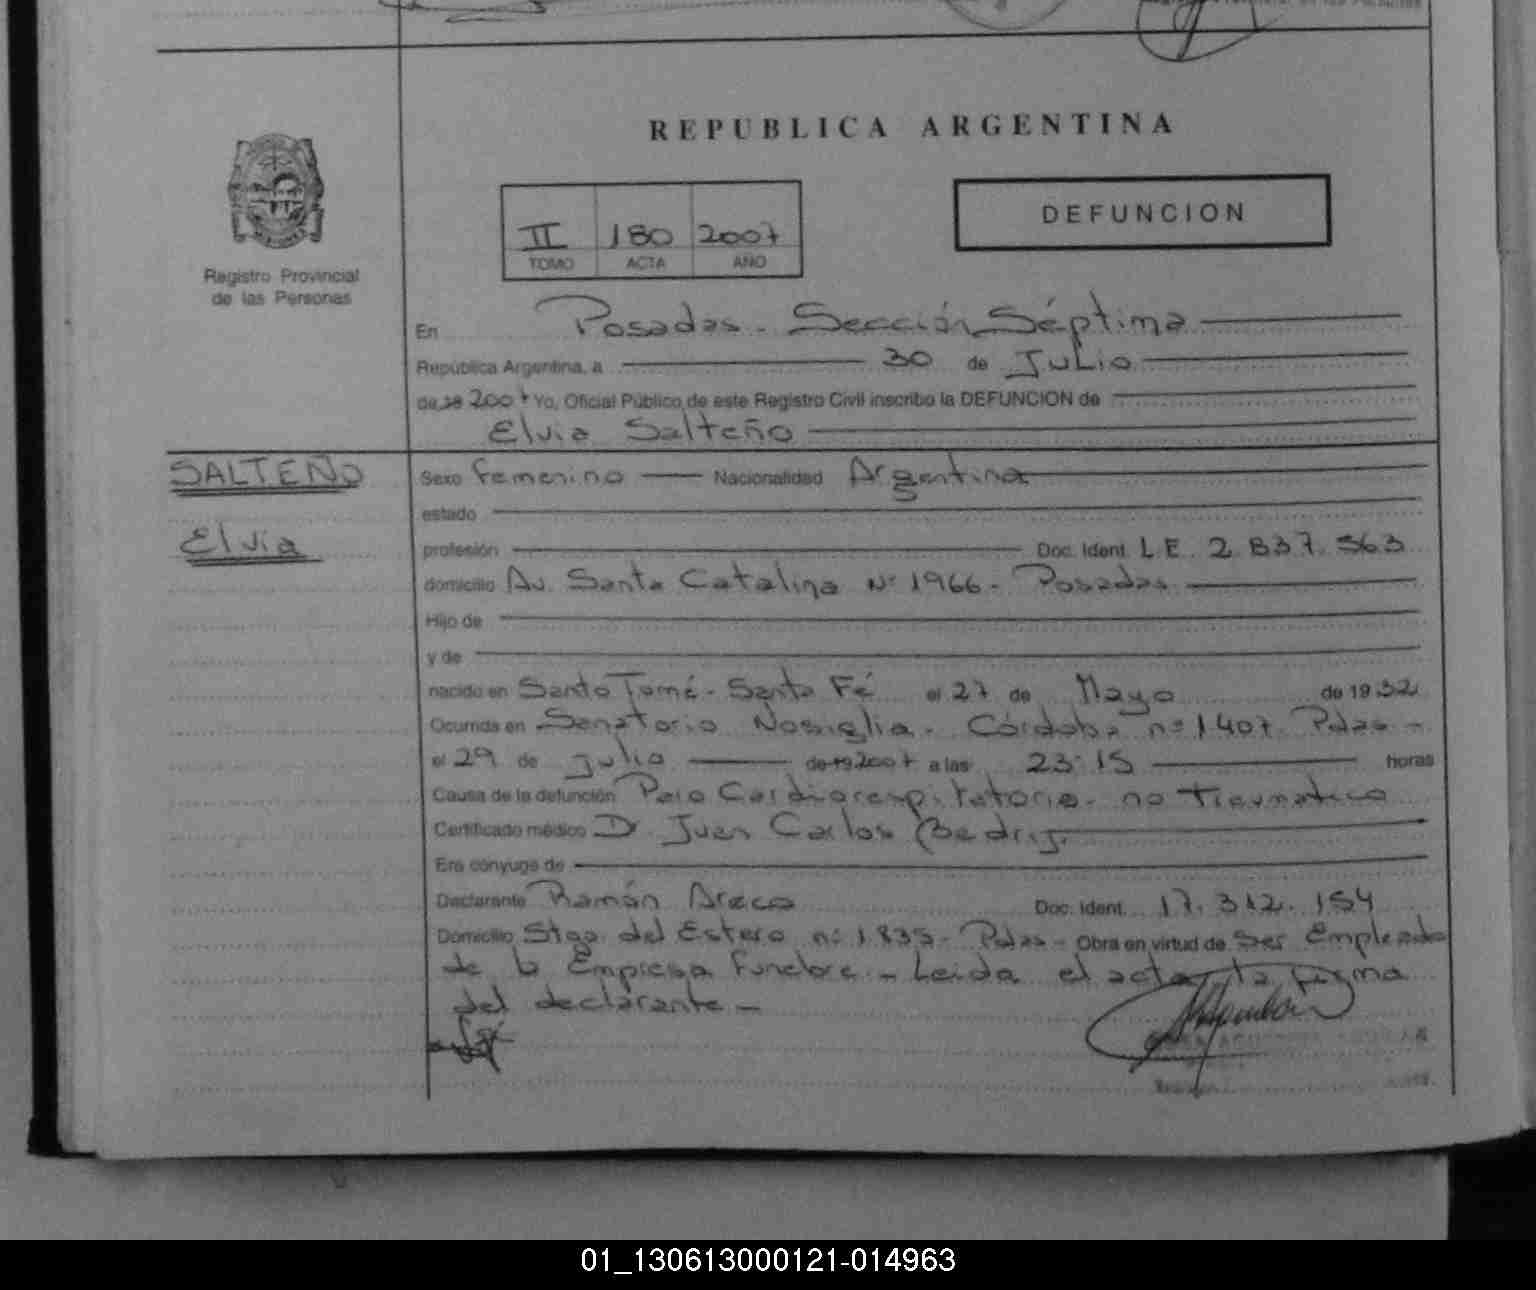 REPUBLICA ARGENTINA
II 180 2007
TOMO ACTA AÑO
DEFUNCION
Registro Provincial
de las Personas
En Posadas - Sección Séptima
República Argentina, a 30 de Julio
de 19 2007 Yo, Oficial Público de este Registro Civil inscribo la DEFUNCION de
Elvia Salteño
SALTEÑO
Elvia
Sexo Femenino Nacionalidad Argentina
estado
profesión Doc. Ident. L.E. 2.837.563
domicilio Av. Santa Catalina Nº 1966 - Posadas
Hijo de
y de
nacido en Santo Tomé - Santa Fé el 27 de Mayo de 1932
Ocurrida en Sanatorio Nosiglia - Córdoba nº 1407 Pdas -
el 29 de Julio de 19 2007 a las 23:15 horas
Causa de la defunción Paro Cardiorespiratorio - no traumatico
Certificado médico Dr. Juan Carlos
Era cónyuge de
Declarante Ramón Areco Doc. Ident. 17.312.154
Domicilio Stgo. del Estero nº 1835 - Pdas - Obra en virtud de Ser Empleado
de la Empresa Funebre - Leida el acta la firma
del declarante -
01_130613000121-014963